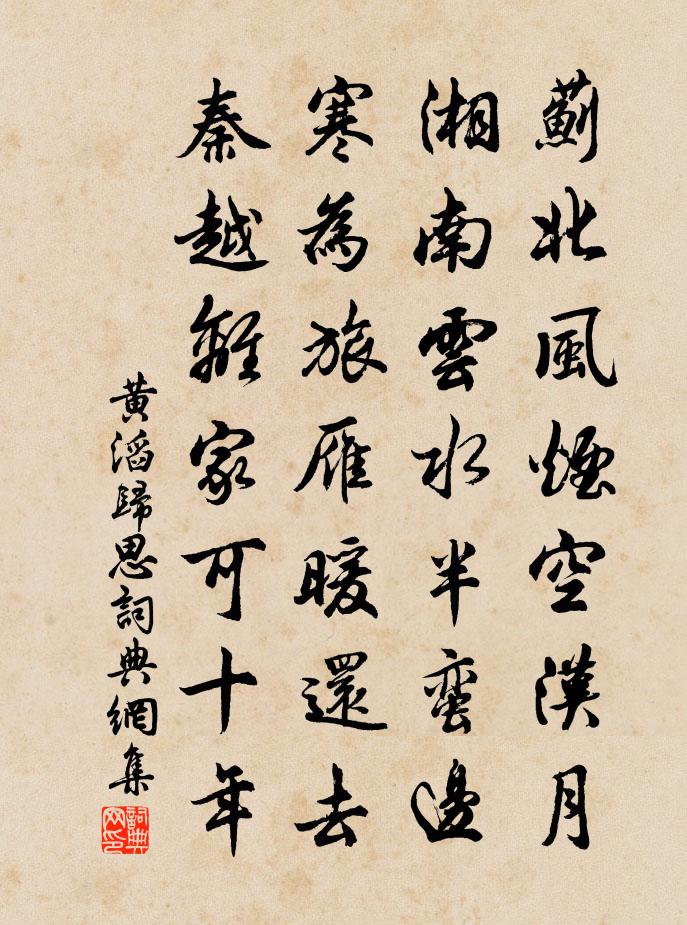 薊北風煙空漢月
湘南雲水半蠻邊
寒為旅雁暖還去
秦越離家可十年
黃滔歸思詞典網集
詞典网印